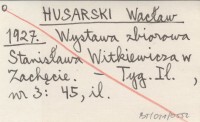 HUSARSKI Wacław
1927. Wystawa zbiorowa
Stanisława Witkiewicza w
Zachęcie. – Tyg. Il.,
nr 3: 45, il.